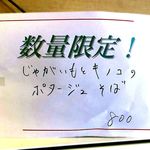 数量限定！
じゃがいもとキノコの
ポタージュそば
800